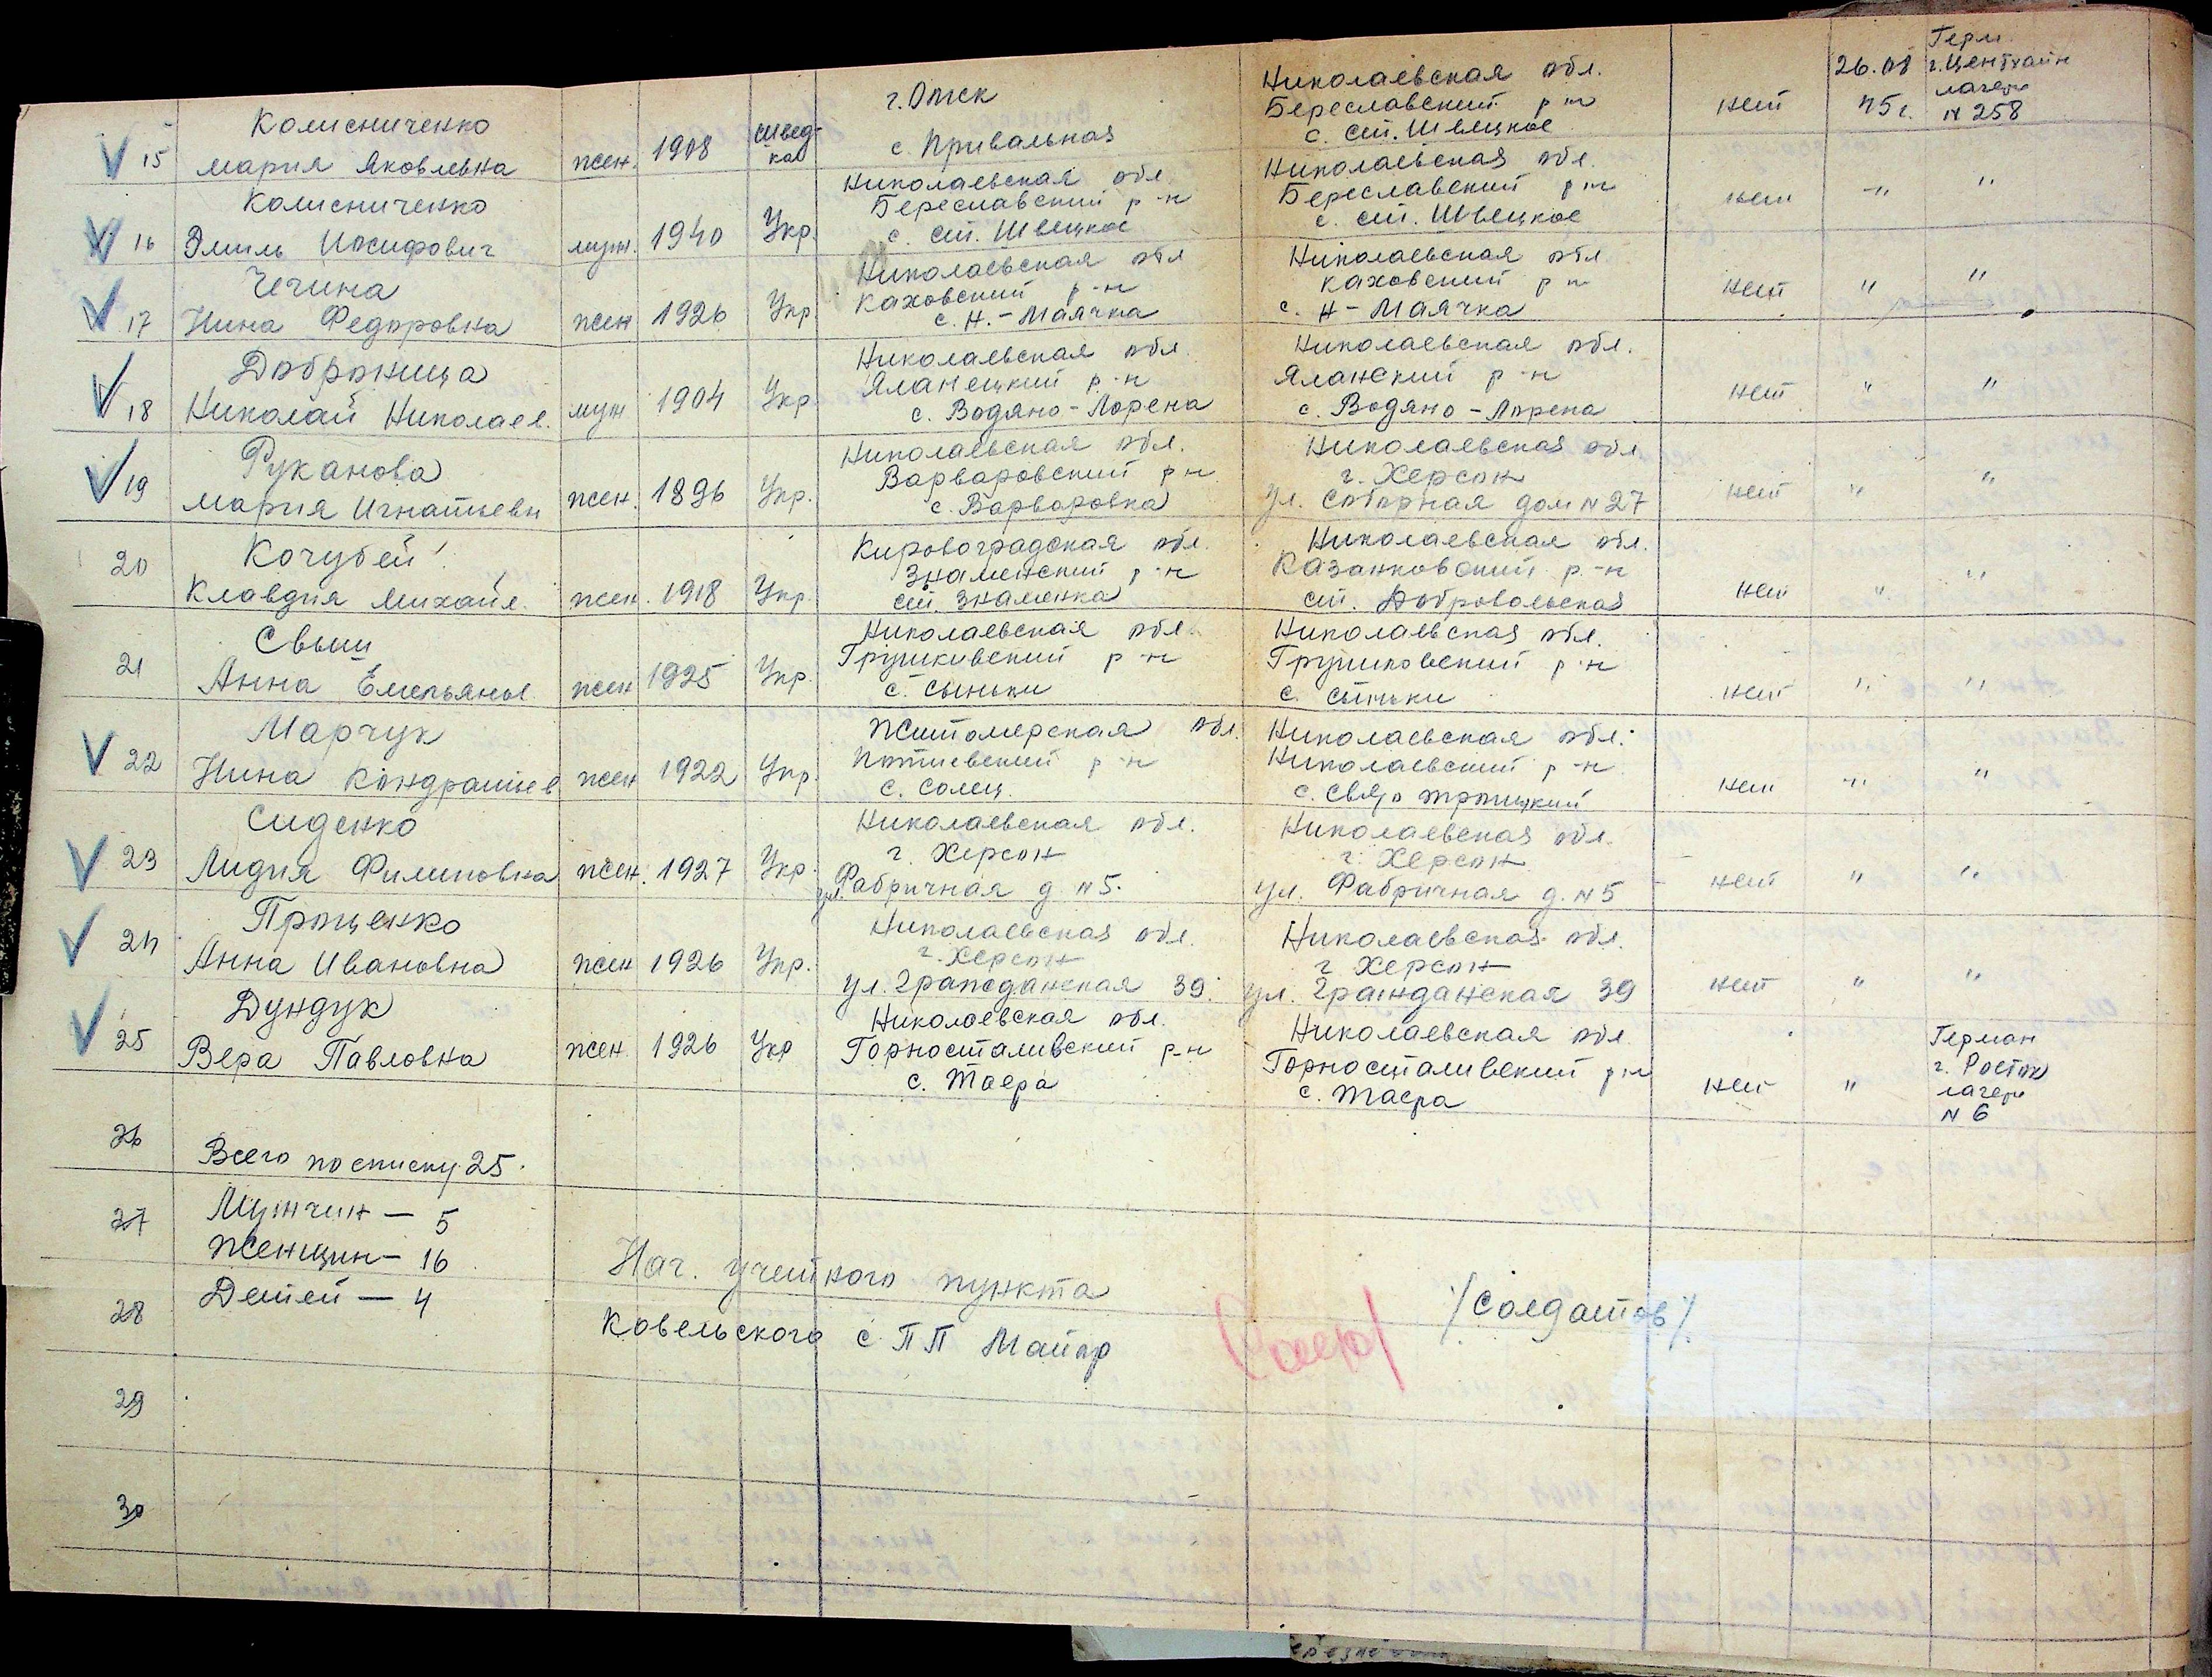 Колисниченко
V 15 Мария Яковлевна жен. 1908 швед-
ка
г. Омск
с. Привальная
Николаевская обл.
Береславский р-н
с. ст. Швецкое
нет
26.08
45 г.
Герм.
лагерь
N 258
Колисниченко
V 16 Эмиль Иосифович муж. 1940 Укр.
Николаевская обл
Береславский р-н
с. ст. Швецкое
Николаевская обл.
Береславский р-н
с. ст. Швецкое
нет " "
Чечина
V 17 Нина Федоровка жен 1926 Укр
Николаевская обл
Каховский р-н
с. Н.-Маячка
Николаевская обл
Каховский р-н
с. Н-Маячка
нет " "
Доброница
V 18 Николай Николаев. муж 1904 Укр
Николаевская обл.
Яланецкий р-н
с. Водяно-Лорена
Николаевская обл.
Яланский р-н
с. Водяно-Лорена
нет " "
Руканова
V 19 Мария Игнатьевн жен. 1896 Укр.
Николаевская обл.
Варваровский р-н
с. Варваровка
Николаевская обл
г. Херсон
ул. Соборная дом N 27
нет " "
Кочубей
20 Клавдия Михайл. жен. 1918 Укр.
Кировоградская обл.
Знаменский р-н
ст. Знаменка
Николаевская обл.
Казанковский р-н
ст. Добровольская
нет " "
Свыш
21 Анна Емельянов. жен 1925 Укр.
Николаевская обл.
Грушкивский р-н
с. Сыньки
Николаевская обл.
Грушковский р-н
с. Сыньки
нет " "
Марчук
V 22 Нина Кондратьев жен 1922 Укр.
Житомерская обл.
Потиевский р-н
с. Солец.
Николаевская обл.
Николаевский р-н
с. Свято троицкий
нет " "
Сиденко
V 23 Лидия Филиповна жен. 1927 Укр.
Николаевская обл.
г. Херсон
ул. Фабричная д. N 5.
Николаевская обл.
г. Херсон
ул. Фабричная д. N 5
нет " "
Проценко
V 24 Анна Ивановна жен 1926 Укр.
Николаевская обл.
г. Херсон
ул. Гражданская 39.
Николаевская обл.
г Херсон
ул. Гражданская 39
нет " "
Дундук
V 25 Вера Павловна жен. 1926 Укр
Николаевская обл.
Горносталивский р-н
с. Таера
Николаевская обл
Горносталивский р-н
с. Таера
нет "
Герман
г. Росток
лагерь
N 6
26 Всего по списку 25.
27 Мужчин — 5
Женщин — 16
28 Детей — 4
Нач. учетного пункта
Ковельского с ПП Майор
/Солдатов/
29
30